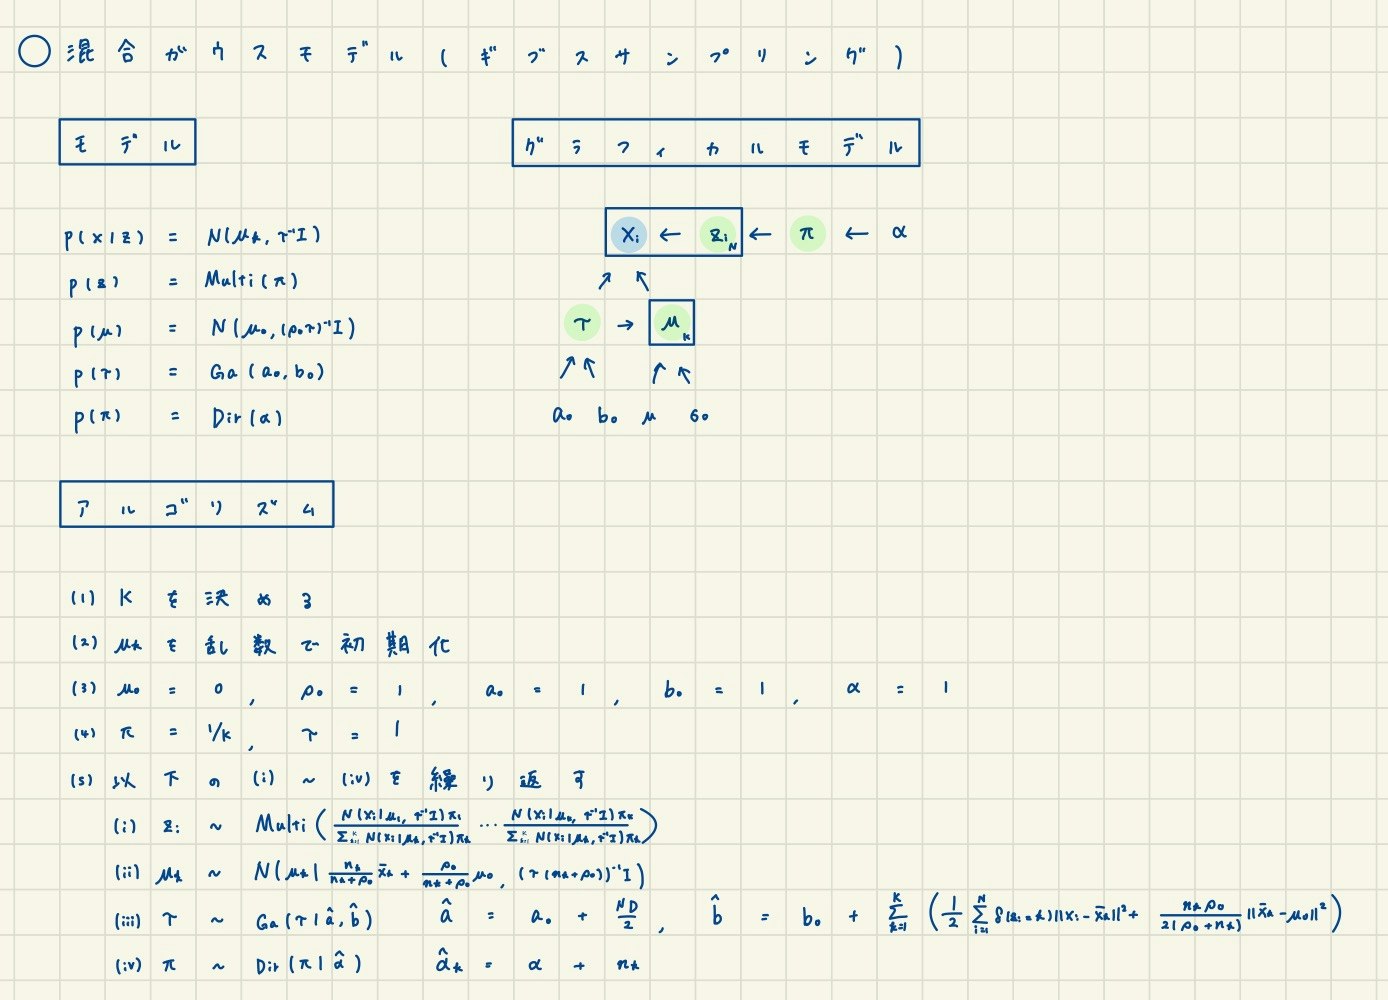 ○ 混合ガウスモデル(ギブスサンプリング)
モデル
グラフィカルモデル
p(x|z) = N(μk, τ⁻¹I)
p(z) = Multi(π)
p(μ) = N(μ₀, (ρ₀τ)⁻¹I)
p(τ) = Ga(a₀, b₀)
p(π) = Dir(α)
xi ← zi N ← π ← α
τ → μ K
a₀ b₀ μ 6₀
アルゴリズム
(1) Kを決める
(2) μkを乱数で初期化
(3) μ₀ = 0, ρ₀ = 1, a₀ = 1, b₀ = 1, α = 1
(4) π = 1/K, τ = 1
(5) 以下の(i)~(iv)を繰り返す
(i) zi ~ Multi( N(xi|μ1, τ⁻¹I)π1 / Σ_{k=1}^{K} N(xi|μk, τ⁻¹I)πk … N(xi|μk, τ⁻¹I)πk / Σ_{k=1}^{K} N(xi|μk, τ⁻¹I)πk )
(ii) μk ~ N(μk | nk/(nk+ρ₀) x̄k + ρ₀/(nk+ρ₀) μ₀, (τ(nk+ρ₀))⁻¹I)
(iii) τ ~ Ga(τ|â, b̂) â = a₀ + ND/2, b̂ = b₀ + Σ_{k=1}^{K} ( 1/2 Σ_{i=1}^{N} δ(zi=k)||xi - x̄k||² + nkρ₀/2(ρ₀+nk) ||x̄k - μ₀||² )
(iv) π ~ Dir(π|α̂) α̂k = α + nk